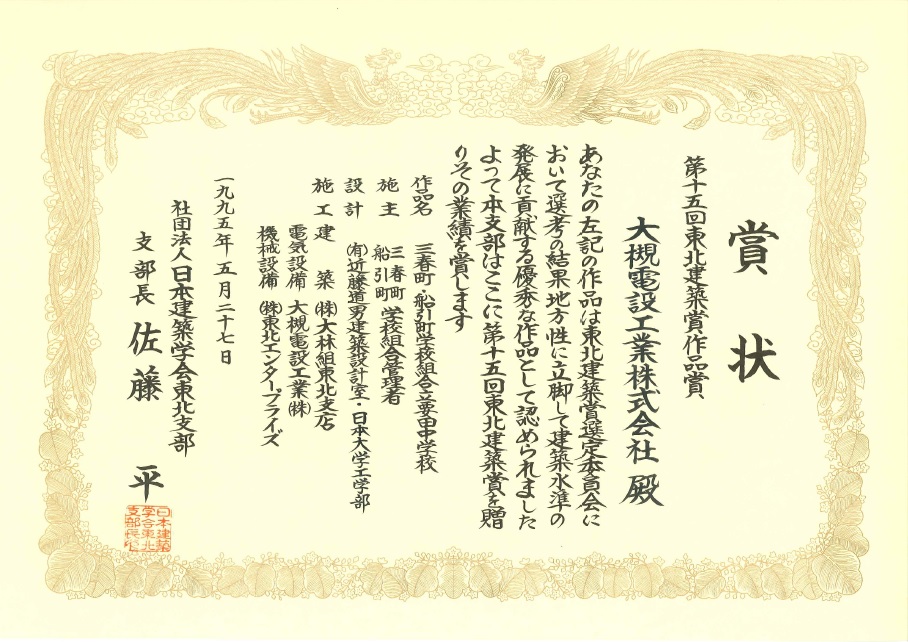 賞状
第十五回東北建築賞作品賞
大槻電設工業株式会社 殿
あなたの左記の作品は東北建築賞選定委員会に
おいて選考の結果地方性に立脚して建築水準の
発展に貢献する優秀な作品として認められました
よって本支部はここに第十五回東北建築賞を贈
りその業績を賞します
作品名 三春町・船引町学校組合立要田中学校
施主 三春町 船引町 学校組合管理者
設計 (有)近藤道男建築設計室・日本大学工学部
施工 建築 (株)大林組東北支店
電気設備 大槻電設工業(株)
機械設備 (株)東北エンタープライズ
一九九五年五月二十七日
社団法人日本建築学会東北支部
支部長 佐藤 平
日本建築
学会東北
支部長之